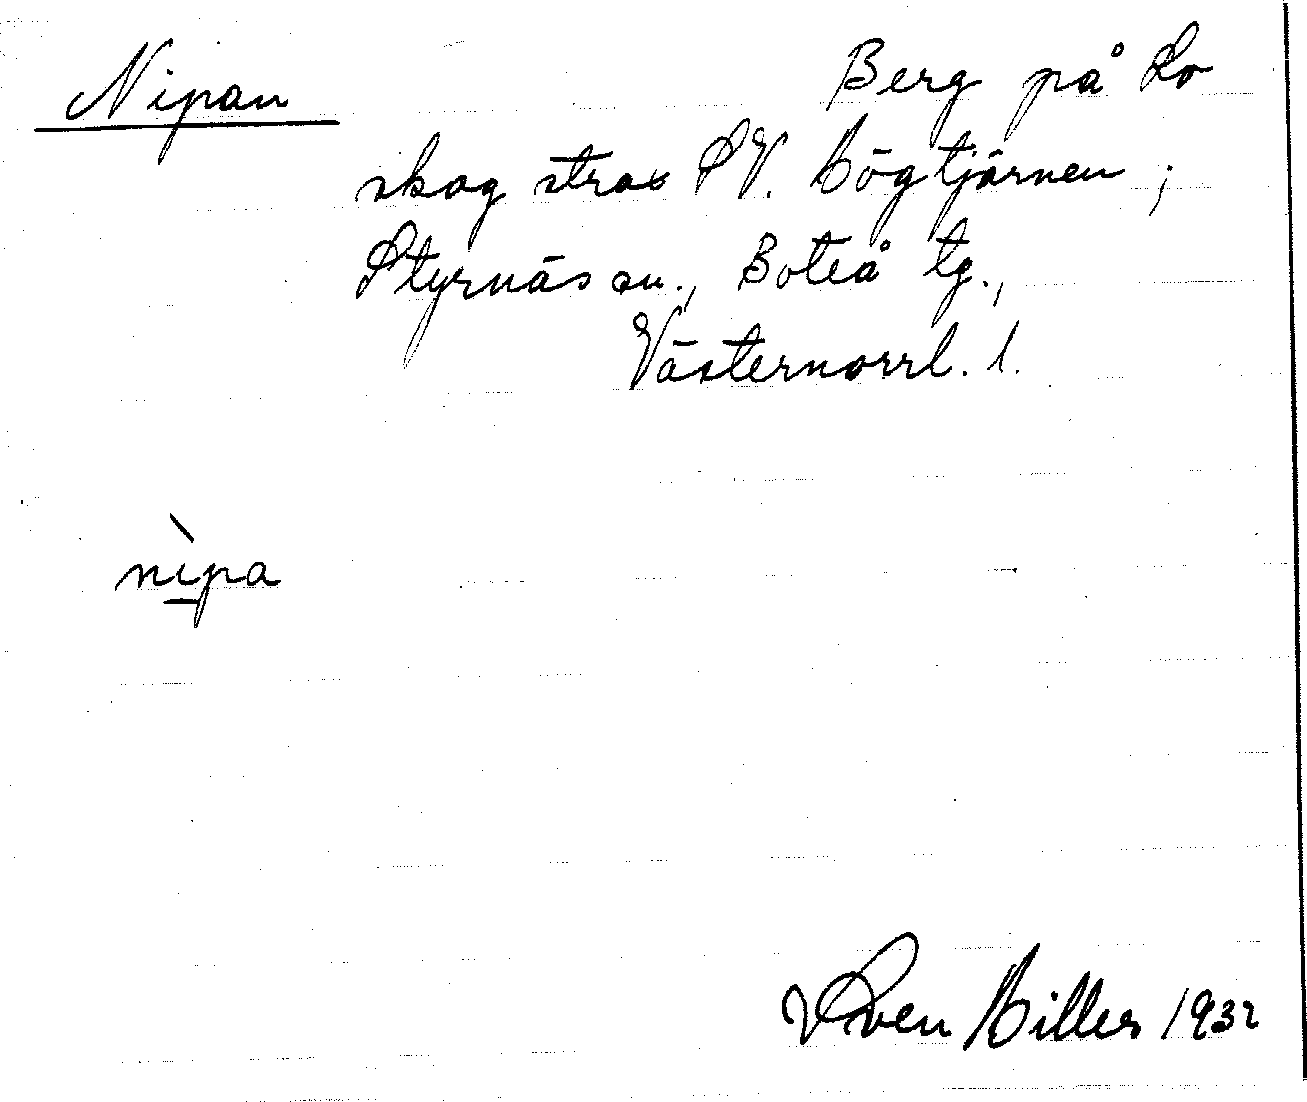 Nipan Berg på Lo
skog strax SV. Högtjärnen;
Styrnäs sn., Boteå tg.,
Västernorrl. l.
nìpa
Sven Hiller 1932